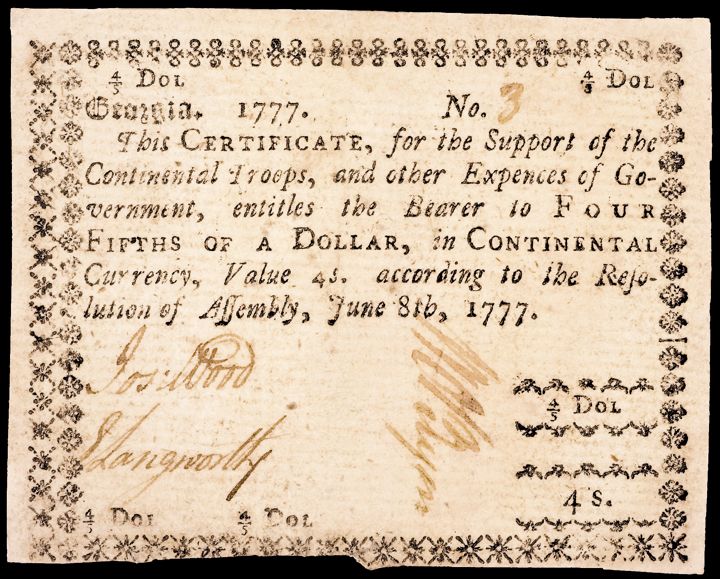 ⅘ Dol ⅘ Dol
Georgia. 1777. No. 3
This Certificate, for the Support of the
Continental Troops, and other Expences of Go-
vernment, entitles the Bearer to Four
Fifths of a Dollar, in Continental
Currency, Value 4s. according to the Reſo-
lution of Aſſembly, June 8th, 1777.
Jos: Wood
E Langworthy
⅘ Dol
4 s.
⅘ Dol ⅘ Dol